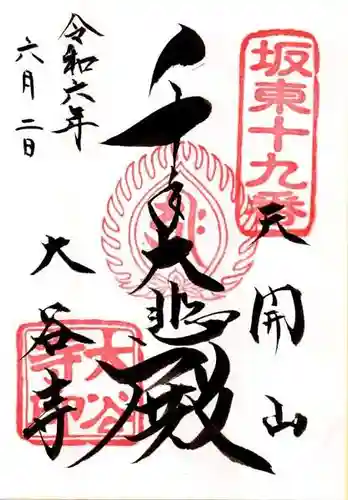 坂東十九番
天開山
千手大悲殿
令和六年
六月二日
大谷寺
大谷寺印